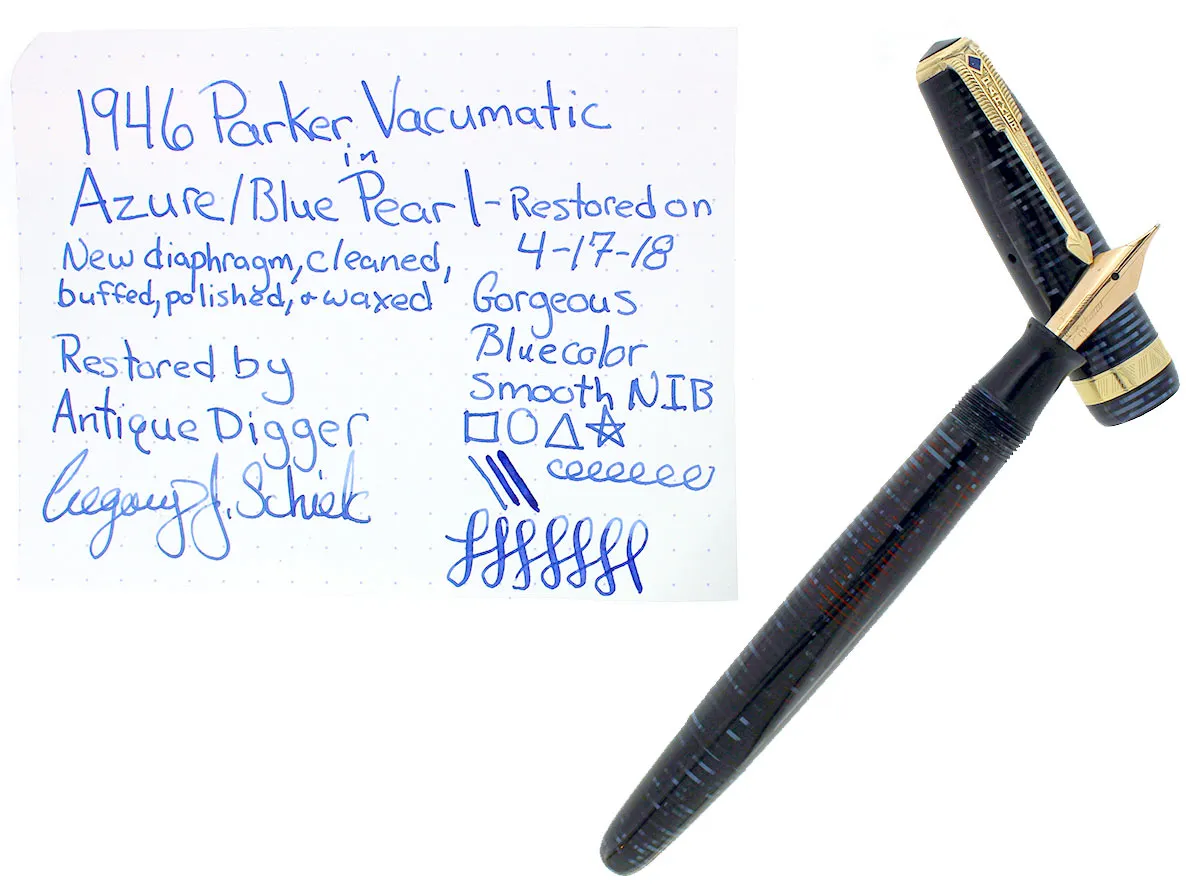 1946 Parker Vacumatic
in
Azure/Blue Pearl - Restored on
4-17-18
New diaphragm, cleaned,
buffed, polished, & waxed
Restored by
Antique Digger
Gregory J. Schiek
Gorgeous
Blue color
Smooth NIB
PARKER